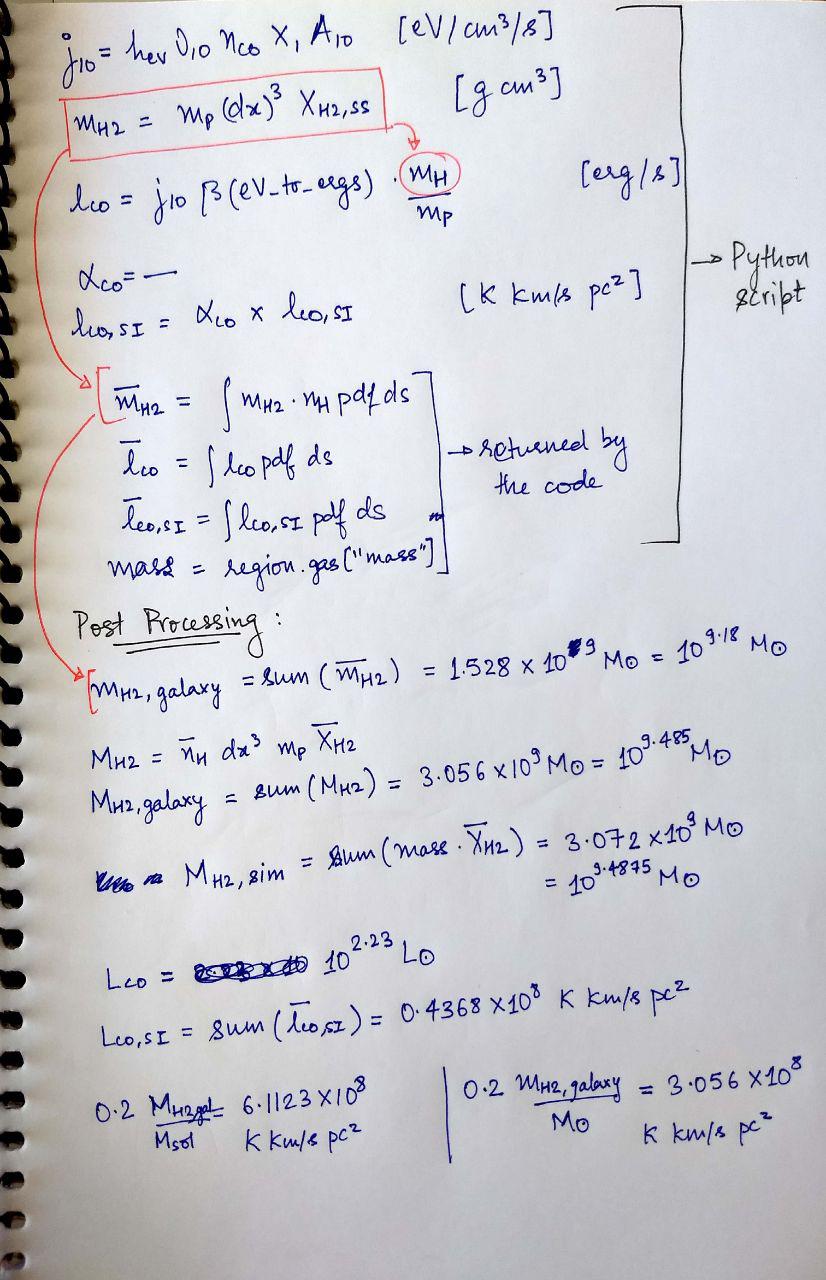 j₁₀ = h_ev ν₁₀ n_co x₁ A₁₀ [eV/cm³/s]
m_H2 = m_p (dx)³ X_H2,ss [g cm³]
l_co = j₁₀ β (eV_to_ergs) · m_H / m_p [erg/s]
α_co = —
l_co,SI = α_co × l_co,SI [K km/s pc²]
→ Python script
m̄_H2 = ∫ m_H2 · n_H pdf ds
l̄_co = ∫ l_co pdf ds → returned by the code
l̄_co,SI = ∫ l_co,SI pdf ds
mass = region.gas["mass"]
Post Processing :
m_H2, galaxy = sum (m̄_H2) = 1.528 × 10⁹ M⊙ = 10^9.18 M⊙
M_H2 = n̄_H dx³ m_p X̄_H2
M_H2, galaxy = sum (M_H2) = 3.056 × 10⁹ M⊙ = 10^9.485 M⊙
M_H2, sim = sum (mass · X̄_H2) = 3.072 × 10⁹ M⊙
= 10^9.4875 M⊙
L_co = 10^2.23 L⊙
L_co,SI = sum (l̄_co,SI) = 0.4368 × 10⁸ K km/s pc²
0.2 M_H2gal / Msol = 6.1123 × 10⁸ K km/s pc²
0.2 m_H2, galaxy / M⊙ = 3.056 × 10⁸ K km/s pc²